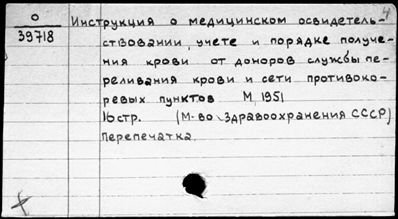 О
39718
4
Инструкция о медицинском освидетель-
ствовании, учете и порядке получе-
ния крови от доноров службы пе-
реливания крови и сети противоко-
ревых пунктов М, 1951
10стр. (М-во Здравоохранения СССР)
Перепечатка.